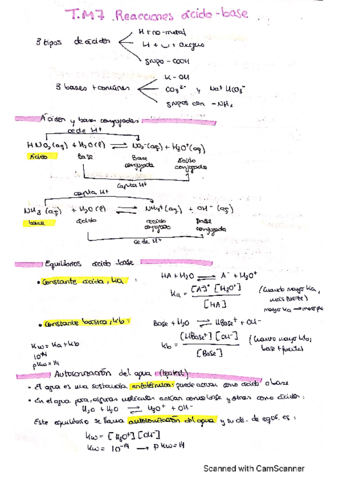 T.M7 Reacciones ácido-base
3 tipos de ácidos
H + no-metal
H +
grupo -COOH
3 bases + comunes
K-OH
CO3²⁻ y Na⁺ HCO3⁻
grupos con -NH2
Ácidos y bases conjugados:
cede H⁺
HNO3(aq) + H2O(l) ⇌ NO3⁻(aq) + H3O⁺(aq)
Ácido Base Base conjugada Ácido conjugado
capta H⁺
capta H⁺
NH3(aq) + H2O(l) ⇌ NH4⁺(aq) + OH⁻(aq)
base ácido ácido conjugado Base conjugada
cede H⁺
Equilibrios ácido base
• Constante ácida, Ka:
HA + H2O ⇌ A⁻ + H3O⁺
Ka = [A⁻] [H3O⁺] / [HA]
(Cuanto mayor Ka, más fuerte)
mayor Ka →
• Constante básica, Kb:
Base + H2O ⇌ HBase⁺ + OH⁻
Kb = [HBase⁺] [OH⁻] / [Base]
(Cuanto mayor Kb, base + fuerte)
Kw = Ka · Kb
10⁻¹⁴
pKw = 14
Autoionización del agua
• El agua es una sustancia anfótera: puede actuar como ácido o base
• En el agua pura, algunas moléculas actúan como base y otras como ácidos:
H2O + H2O ⇌ H3O⁺ + OH⁻
Este equilibrio se llama autoionización del agua y su cte. de equil. es:
Kw = [H3O⁺] [OH⁻]
Kw = 10⁻¹⁴ → pKw = 14
Scanned with CamScanner